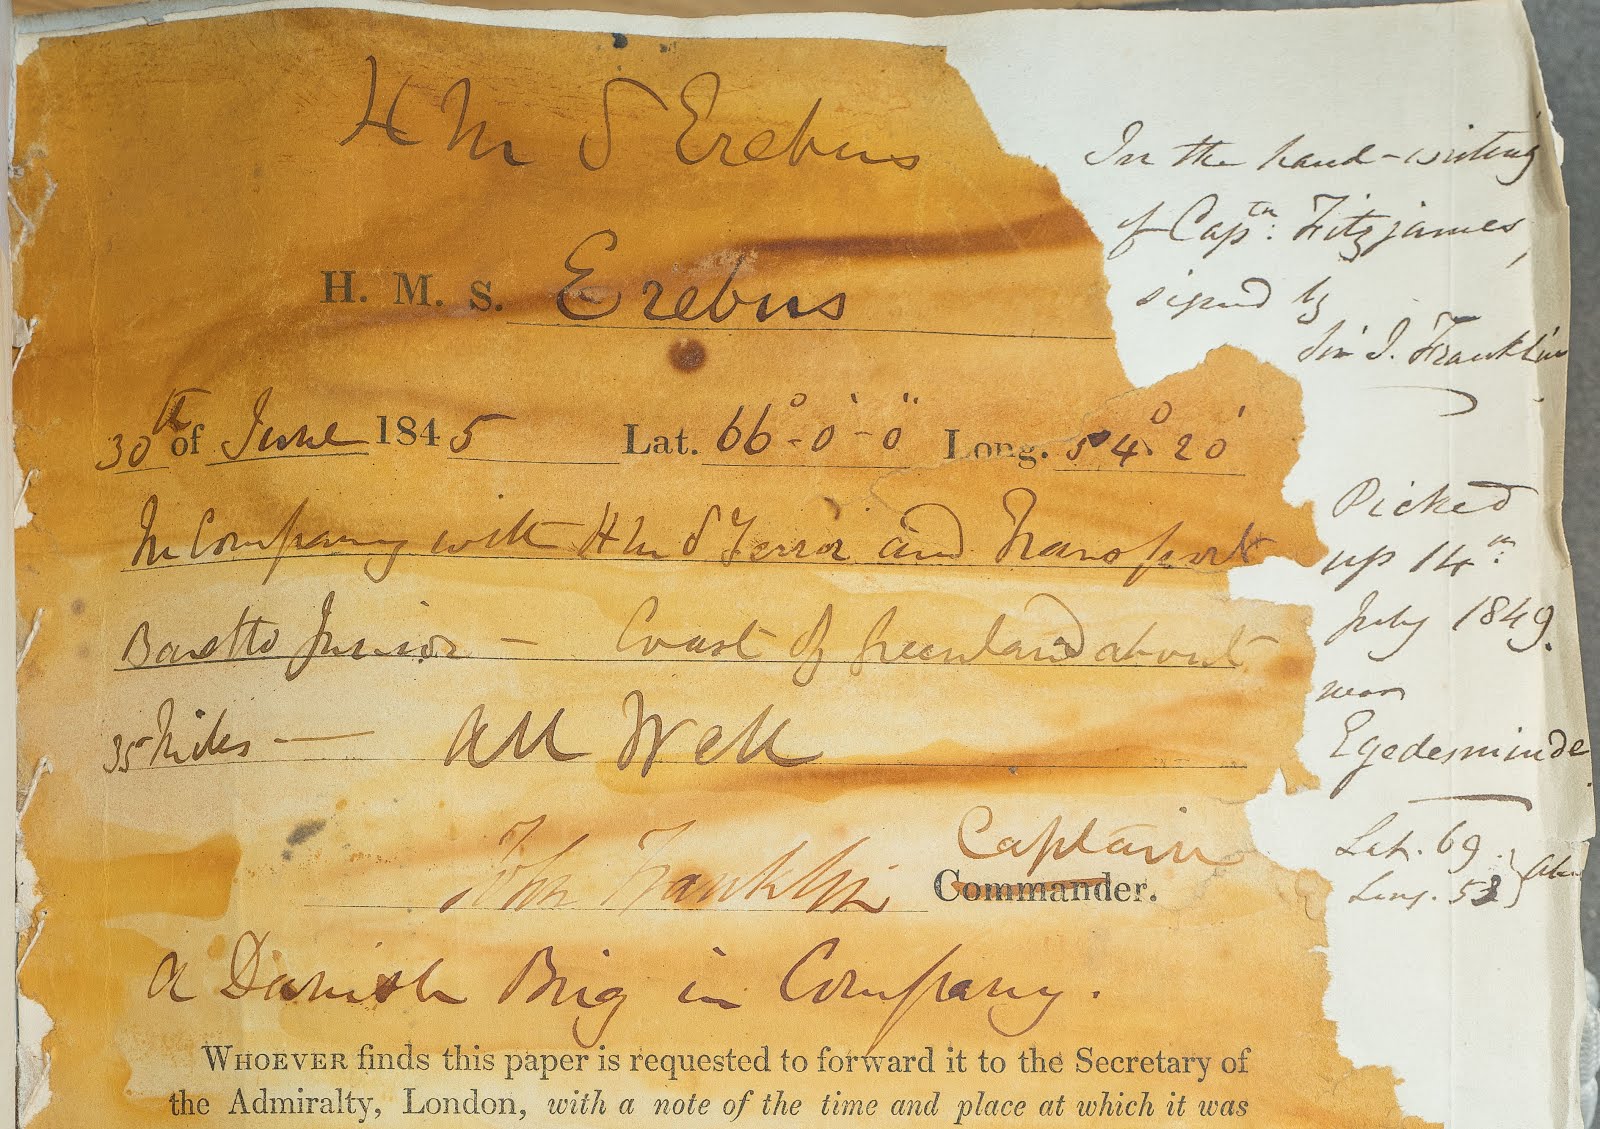 H M S Erebus
H. M. S. Erebus
30th of June 1845 Lat. 66°-0'-0" Long. 54°. 20'
In Company with H M S Terror and Transport
Baretto Junior – Coast of Greenland about
35 Miles — All Well
John Franklin Captain
Commander.
A Danish Brig in Company.
WHOEVER finds this paper is requested to forward it to the Secretary of
the Admiralty, London, with a note of the time and place at which it was
In the hand-writing
of Captn: Fitzjames,
signed by
Sir J. Franklin
Picked
up 14th:
July 1849.
near
Egedesminde
Lat. 69
Long. 53